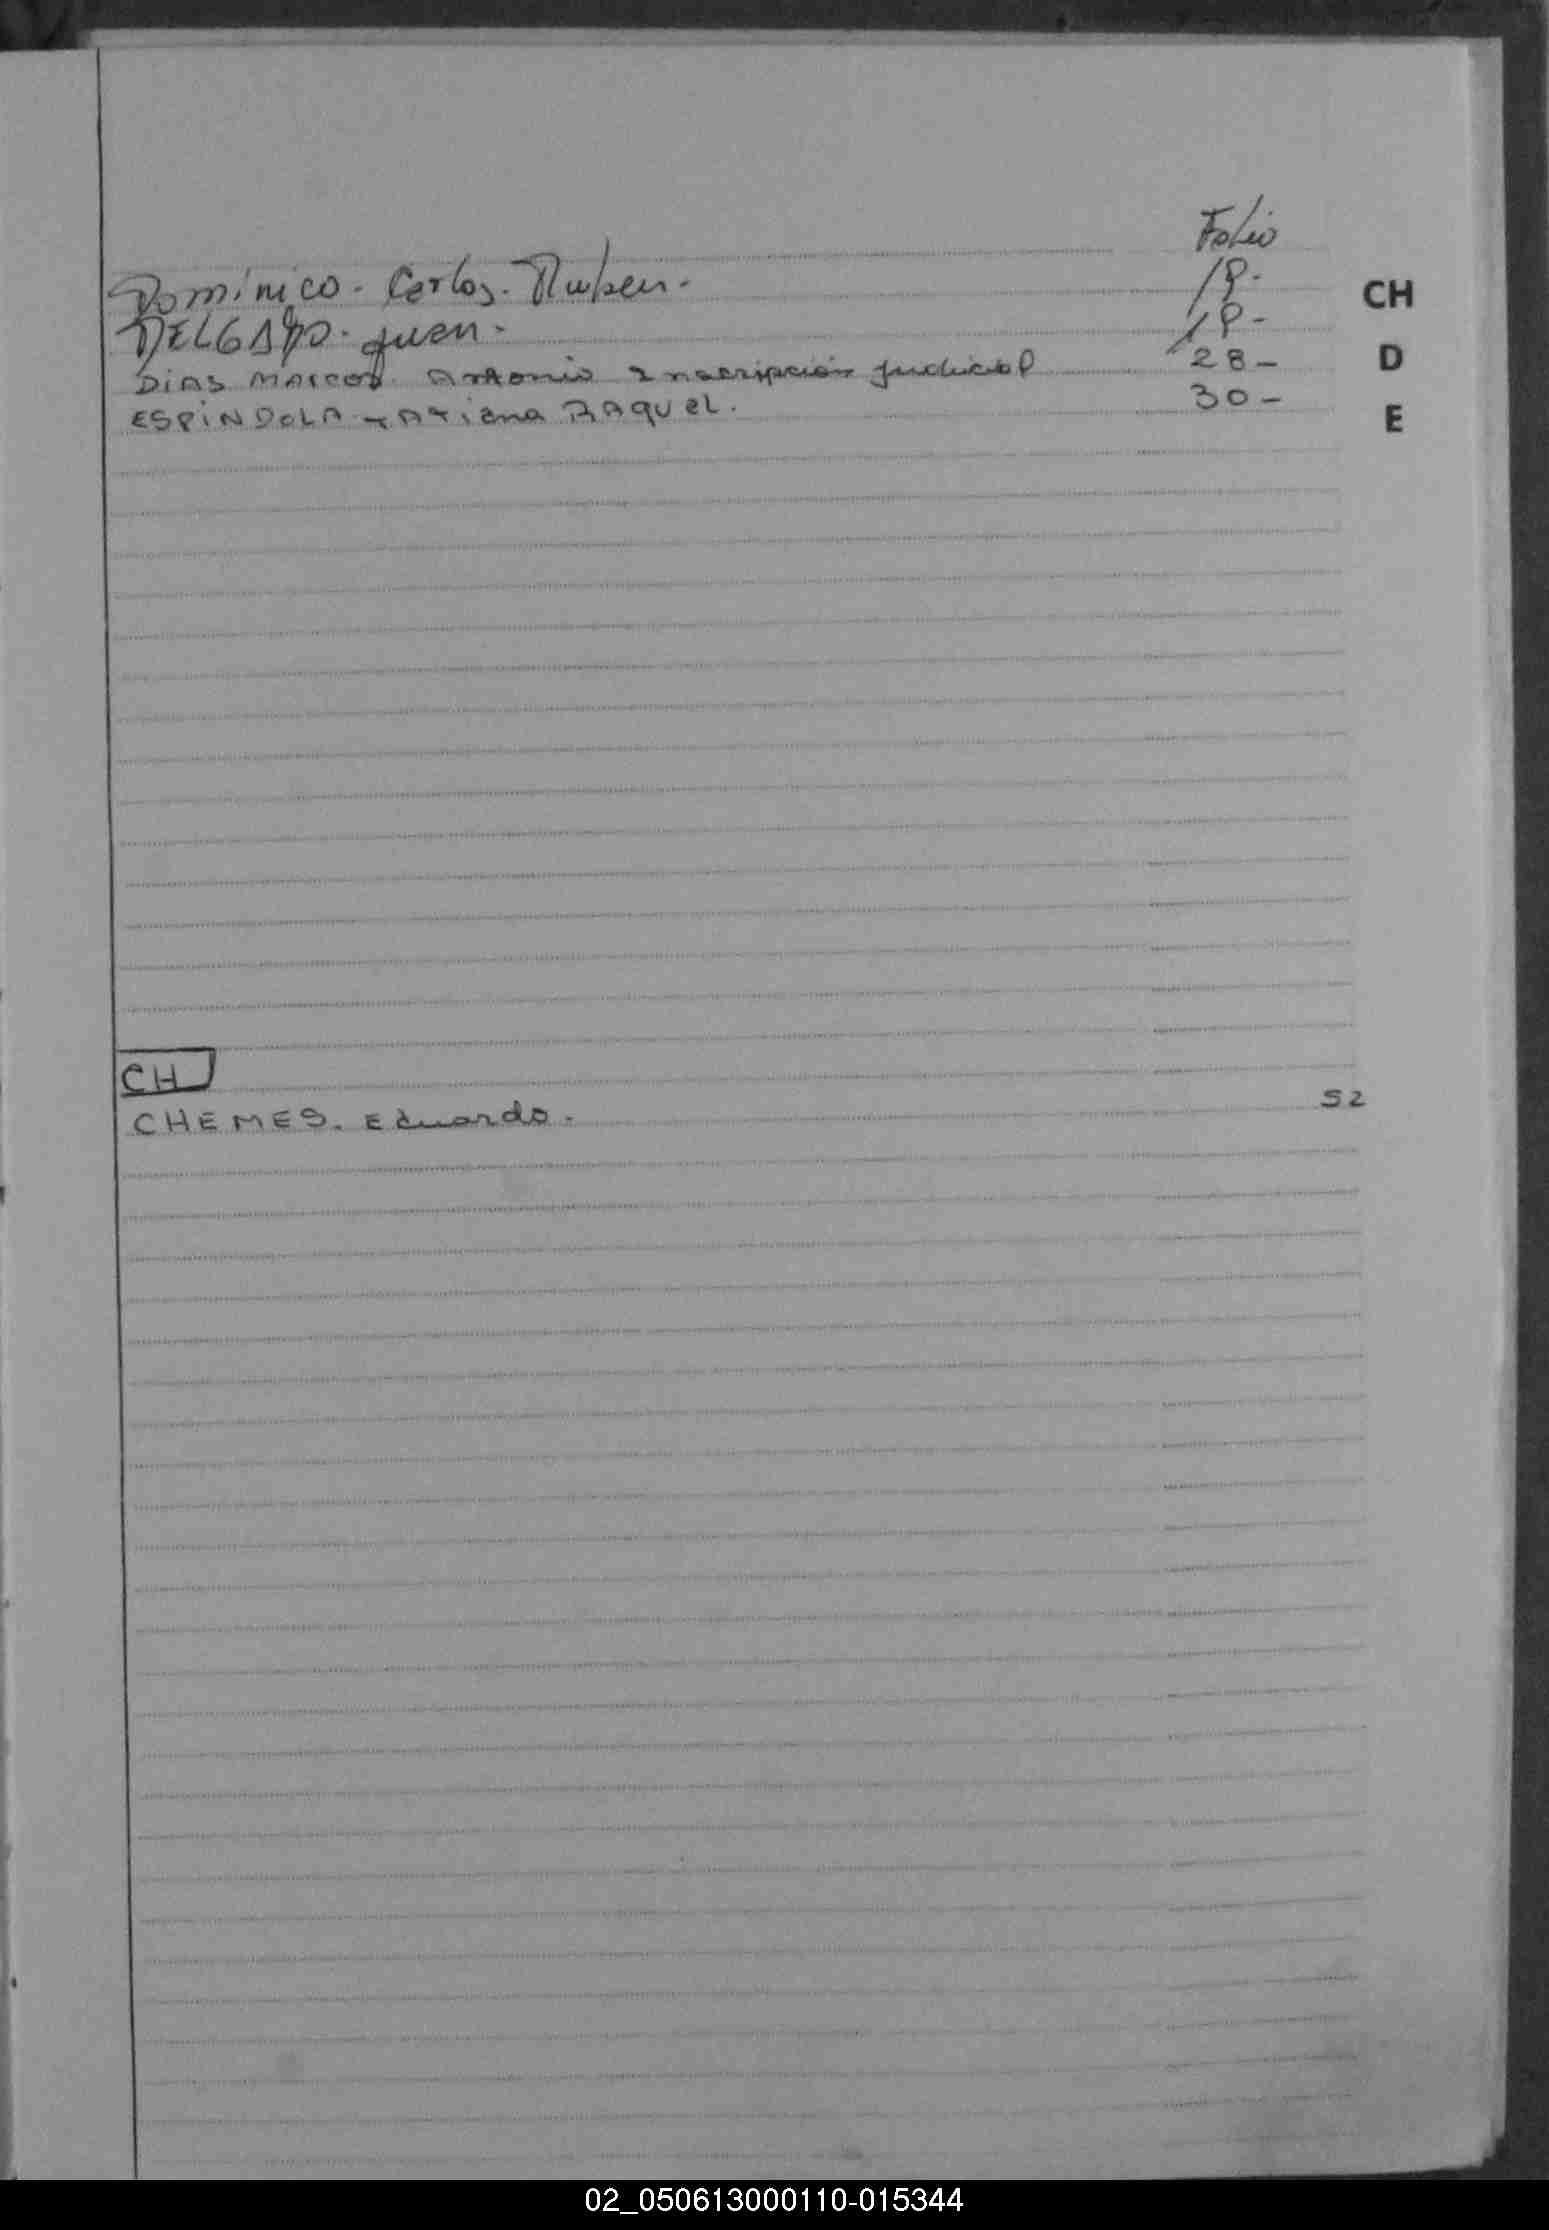 Folio
Dominico - Carlos - Ruben - 19 -
DELGADO - Juan - 19 -
DiAS MARCOS Antonio Inscripción judicial 28 -
ESPINDOLA TATiana RAQUEL. 30 -
CH
D
E
CH
CHEMES. Eduardo. 52
02_050613000110-015344